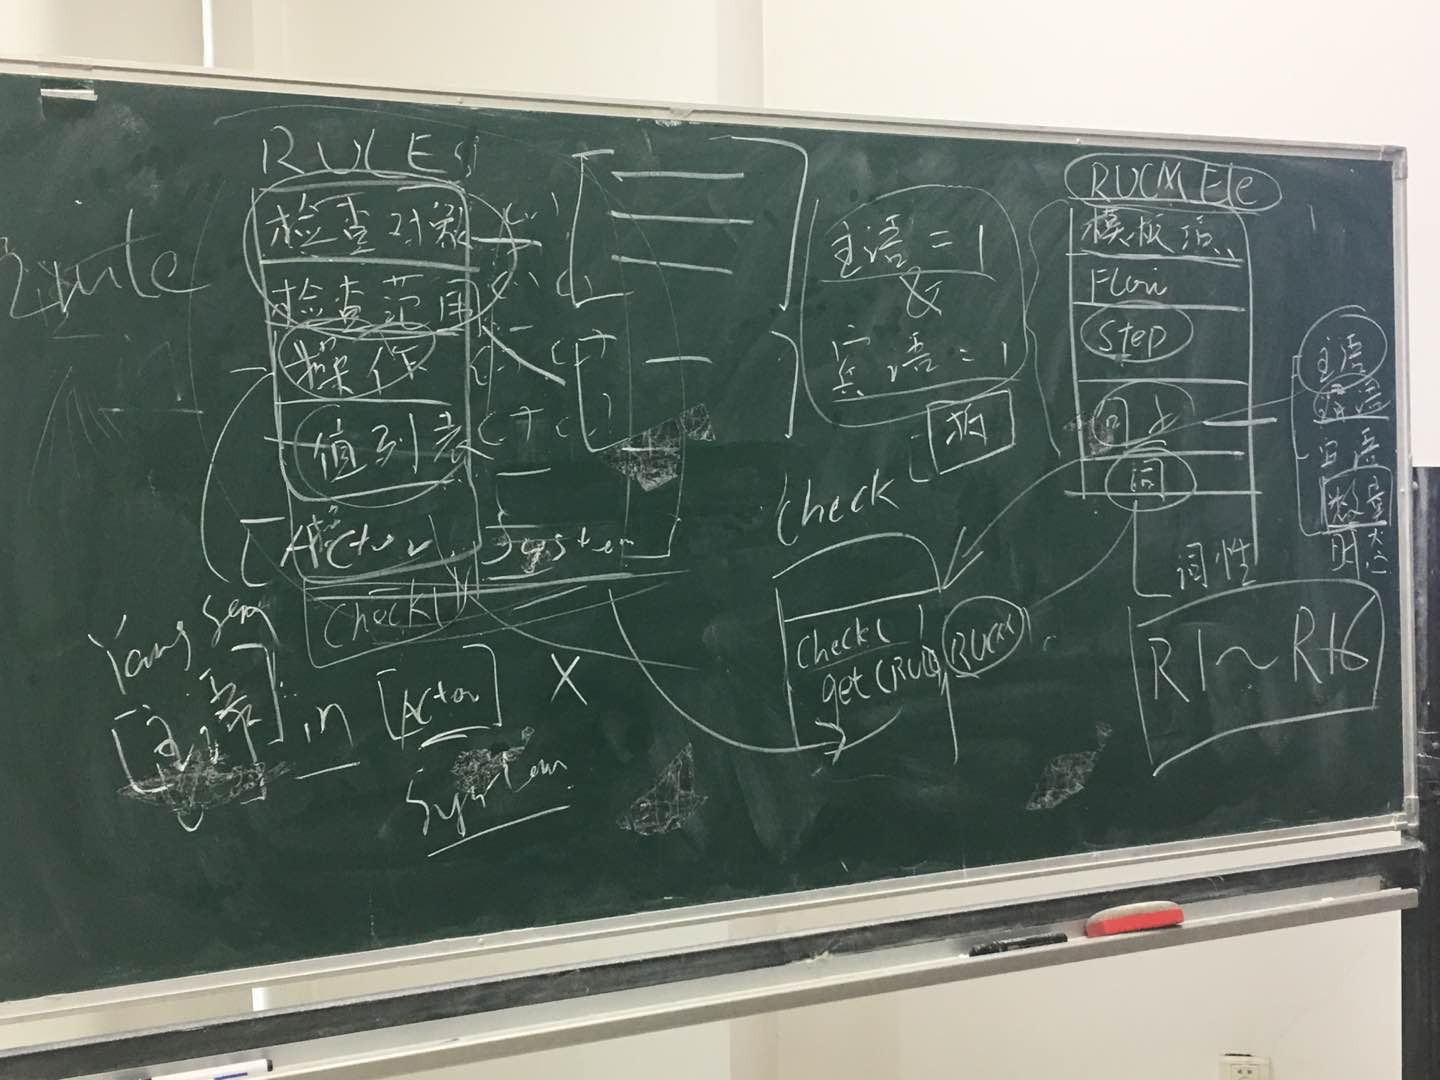 RULES
检查对象
检查范围
操作
值列表
Actor System
Check()
主语 in [Actor]
System
X
主语 = 1
&
宾语 = 1
Check
Check( )
get(RUC
RUCM Ele
模板
Flow
Step
句子
词
词性
主语
谓语
宾语
数量
时态
R1~R16